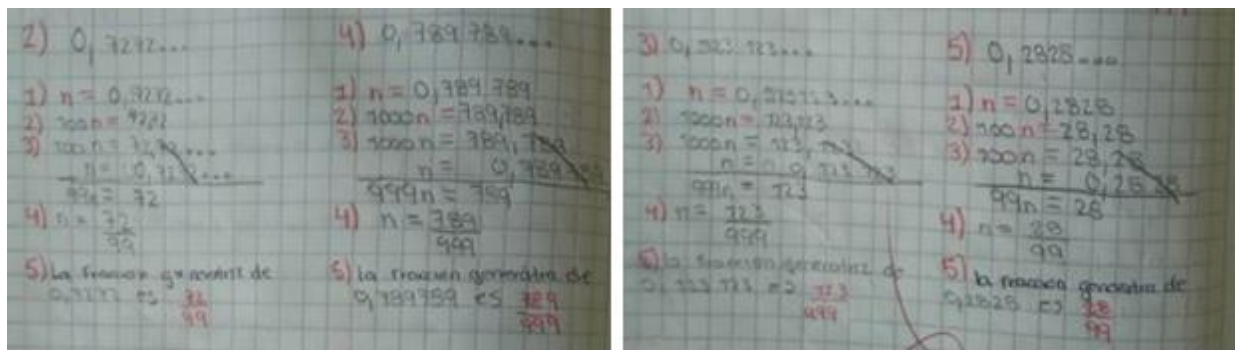 2) 0,7272...
1) n = 0,7272...
2) 100n = 72,72
3) 100n = 72,72...
n = 0,727...
99n = 72
4) n = 72
99
5) La fracción generatriz de
0,7272 es 72
99
4) 0,789789...
1) n = 0,789.789
2) 1000n = 789,789
3) 1000n = 789,789
n = 0,789789
999n = 789
4) n = 789
999
5) la fracción generatriz de
0,789789 es 789
999
3) 0,123.123...
1) n = 0,123123...
2) 1000n = 123,123
3) 1000n = 123,123
n = 0,123 123
999n = 123
4) n = 123
999
5) la fracción generatriz de
0,123 123 es 123
999
5) 0,2828...
1) n = 0,2828
2) 100n = 28,28
3) 100n = 28,28
n = 0,2828
99n = 28
4) n = 28
99
5) la fracción generatriz de
0,2828 es 28
99